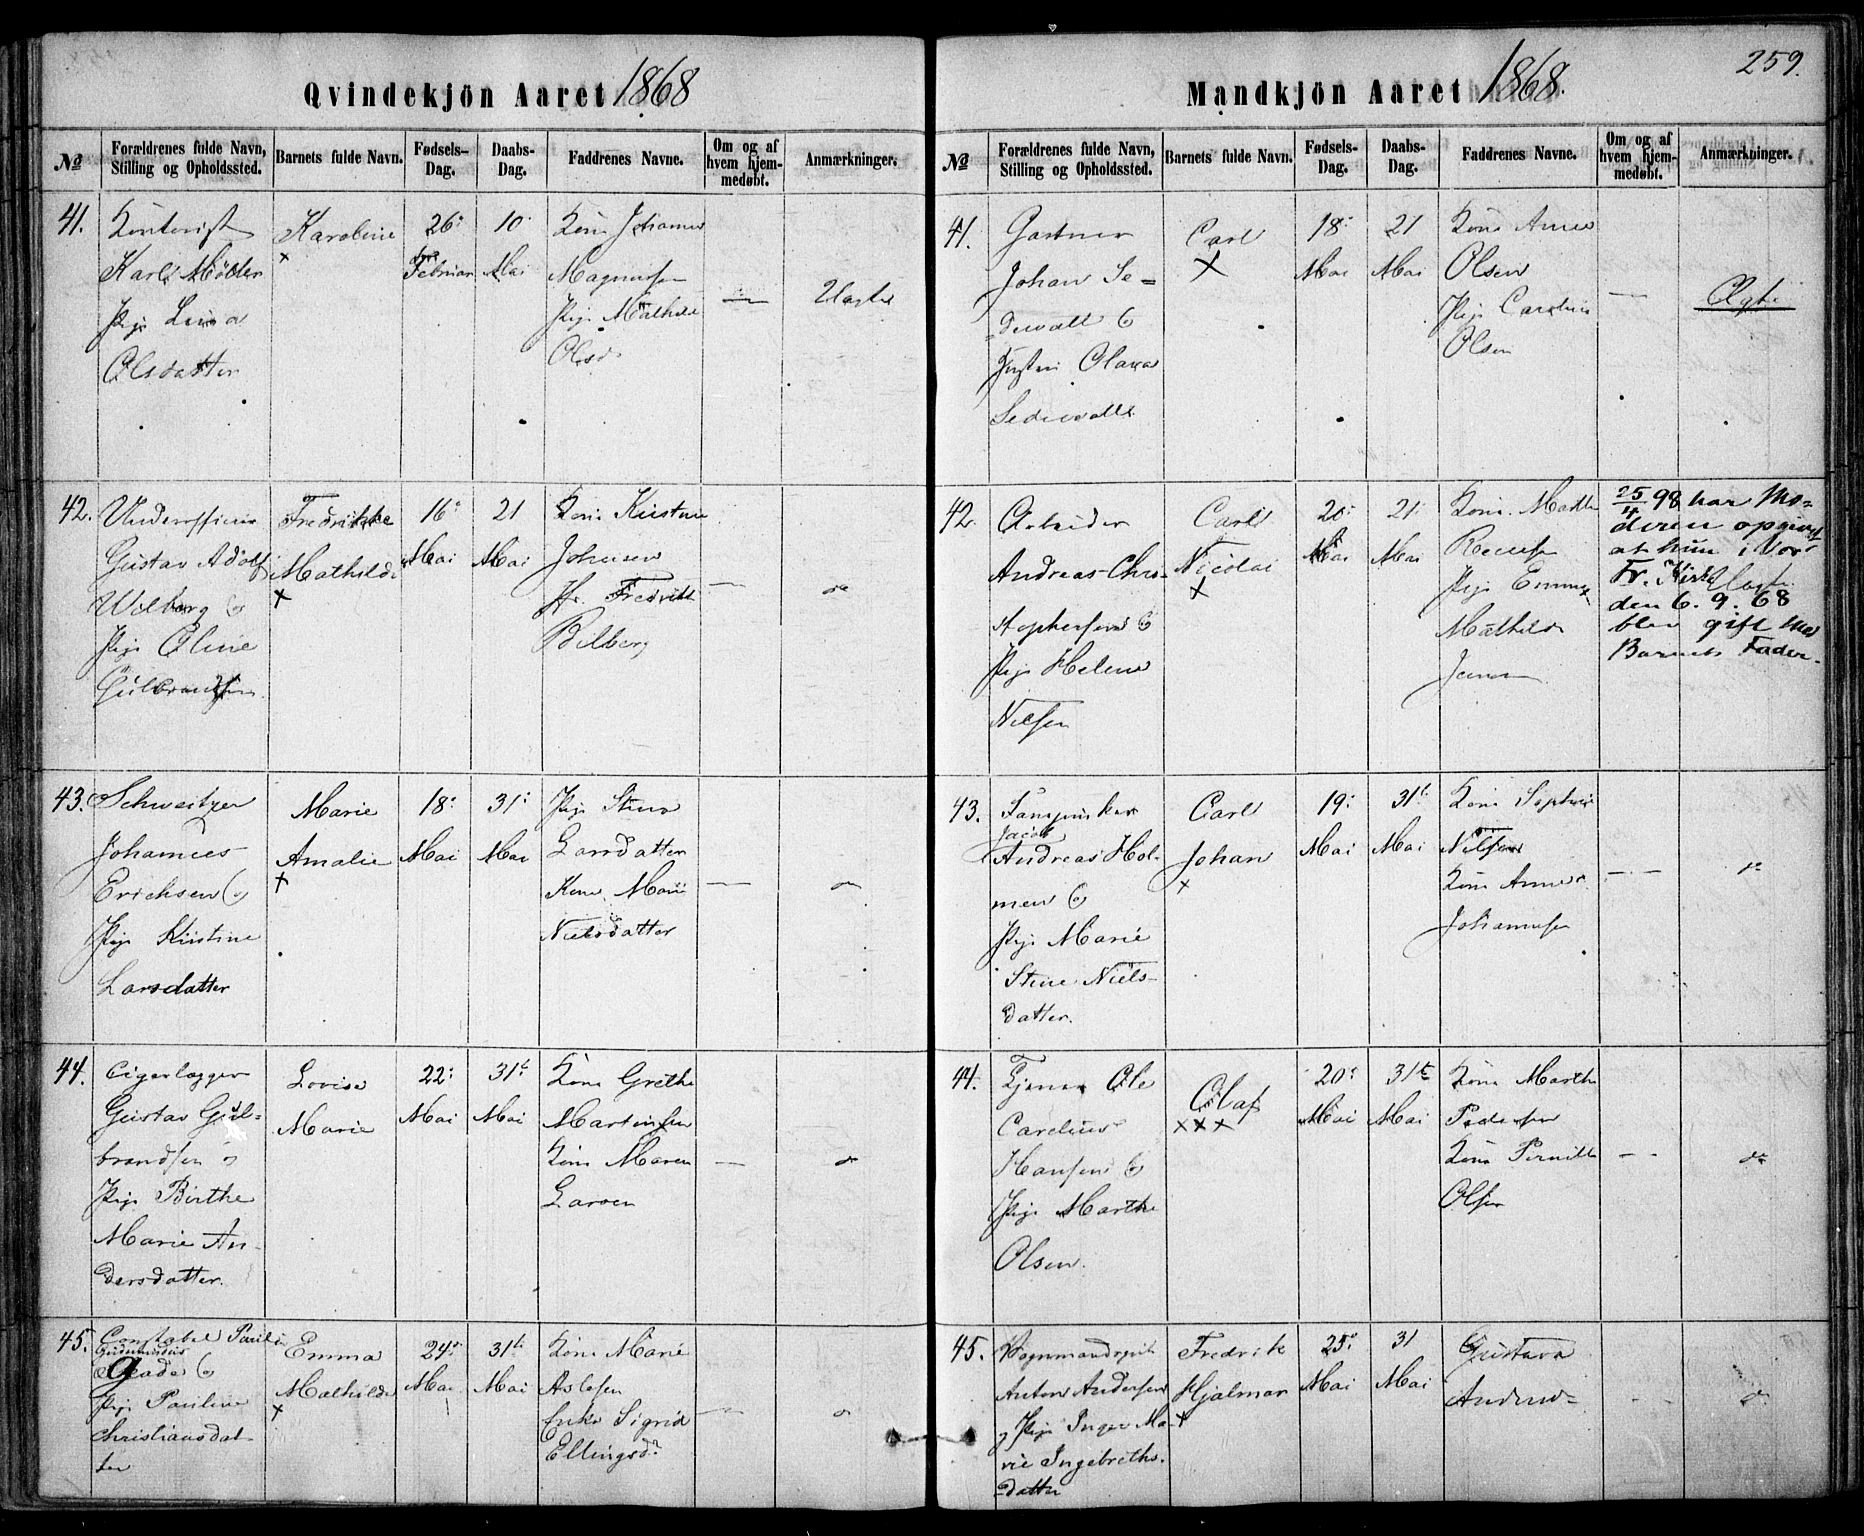 259.
Qvindekjön Aaret 1868
№
Forældrenes fulde Navn,
Stilling og Opholdssted.
Barnets fulde Navn.
Fødsels-
Dag.
Daabs-
Dag.
Faddrenes Navne.
Om og af
hvem hjem-
medøbt.
Anmærkninger.
41.
Karl Möller
Pige
Olsdatter
Karoline
26
Februar
10
Mai
Kone
Magnusen
Pige Mathilde
Olsd
Uægte
42.
Gustav Adolf
Pige Oline
Fredrikke
Mathilde
16
Mai
21
Mai
Kone
Johnsen
43.
Schweitzer
Johannes
Erichsen &
Pige Kirstine
Larsdatter
Marie
Amalie
18
Mai
31
Mai
Pige Stine
Larsdatter
Kone Marie
Nielsdatter
do
44.
Cigarlægger
Gustav Gul-
brandsen &
Pige Birthe
Marie An-
dersdatter.
Lovise
Marie
22
Mai
31t
Mai
Kone Grethe
Martinsen
Kone Maren
Larsen
do
45.
Constabel
Pige Pauline
Christiansdat-
ter
Emma
Mathilde
24
Mai
31t
Mai
Kone Marie
Aslesen
Enke Sigrid
Ellingsd
do
Mandkjön Aaret 1868.
№
Forældrenes fulde Navn,
Stilling og Opholdssted.
Barnets fulde Navn.
Fødsels-
Dag.
Daabs-
Dag.
Faddrenes Navne.
Om og af
hvem hjem-
medøbt.
Anmærkninger.
41.
Gartner
Johan Se-
&
Hustru
Carl
18
Mai
21
Mai
Kone
Olsen
Pige
Olsen
Ægte
42.
Arbeider
Andreas Chri-
stophersen &
Pige Helene
Nilsen
Carl
Nicolai
20
Mai
21
Mai
Kone
Pige Emma
Mathilde
Jensen
25/4 98 har Mo-
deren opgivet
at hun i Vor
Fr. Kirke
den 6. 9. 68
blev gift med
Barnets Fader.
43.
Jacob
Andreas Hol-
men &
Pige Marie
Stine Niels-
datter.
Carl
Johan
19
Mai
31t
Mai
Kone Sophie
Nilsen
Kone
Johannesen
do
44.
Tjener Ole
Carelius
Hansen &
Pige Marthe
Olsen.
Olaf
20
Mai
31te
Mai
Kone Marthe
Pedersen
Kone Pernille
Olsen
do
45.
Anton Andersen
& Pige Inger Ma-
rie Ingebreths-
datter
Fredrik
Hjalmar
25
Mai
31
Mai
Gustava
do